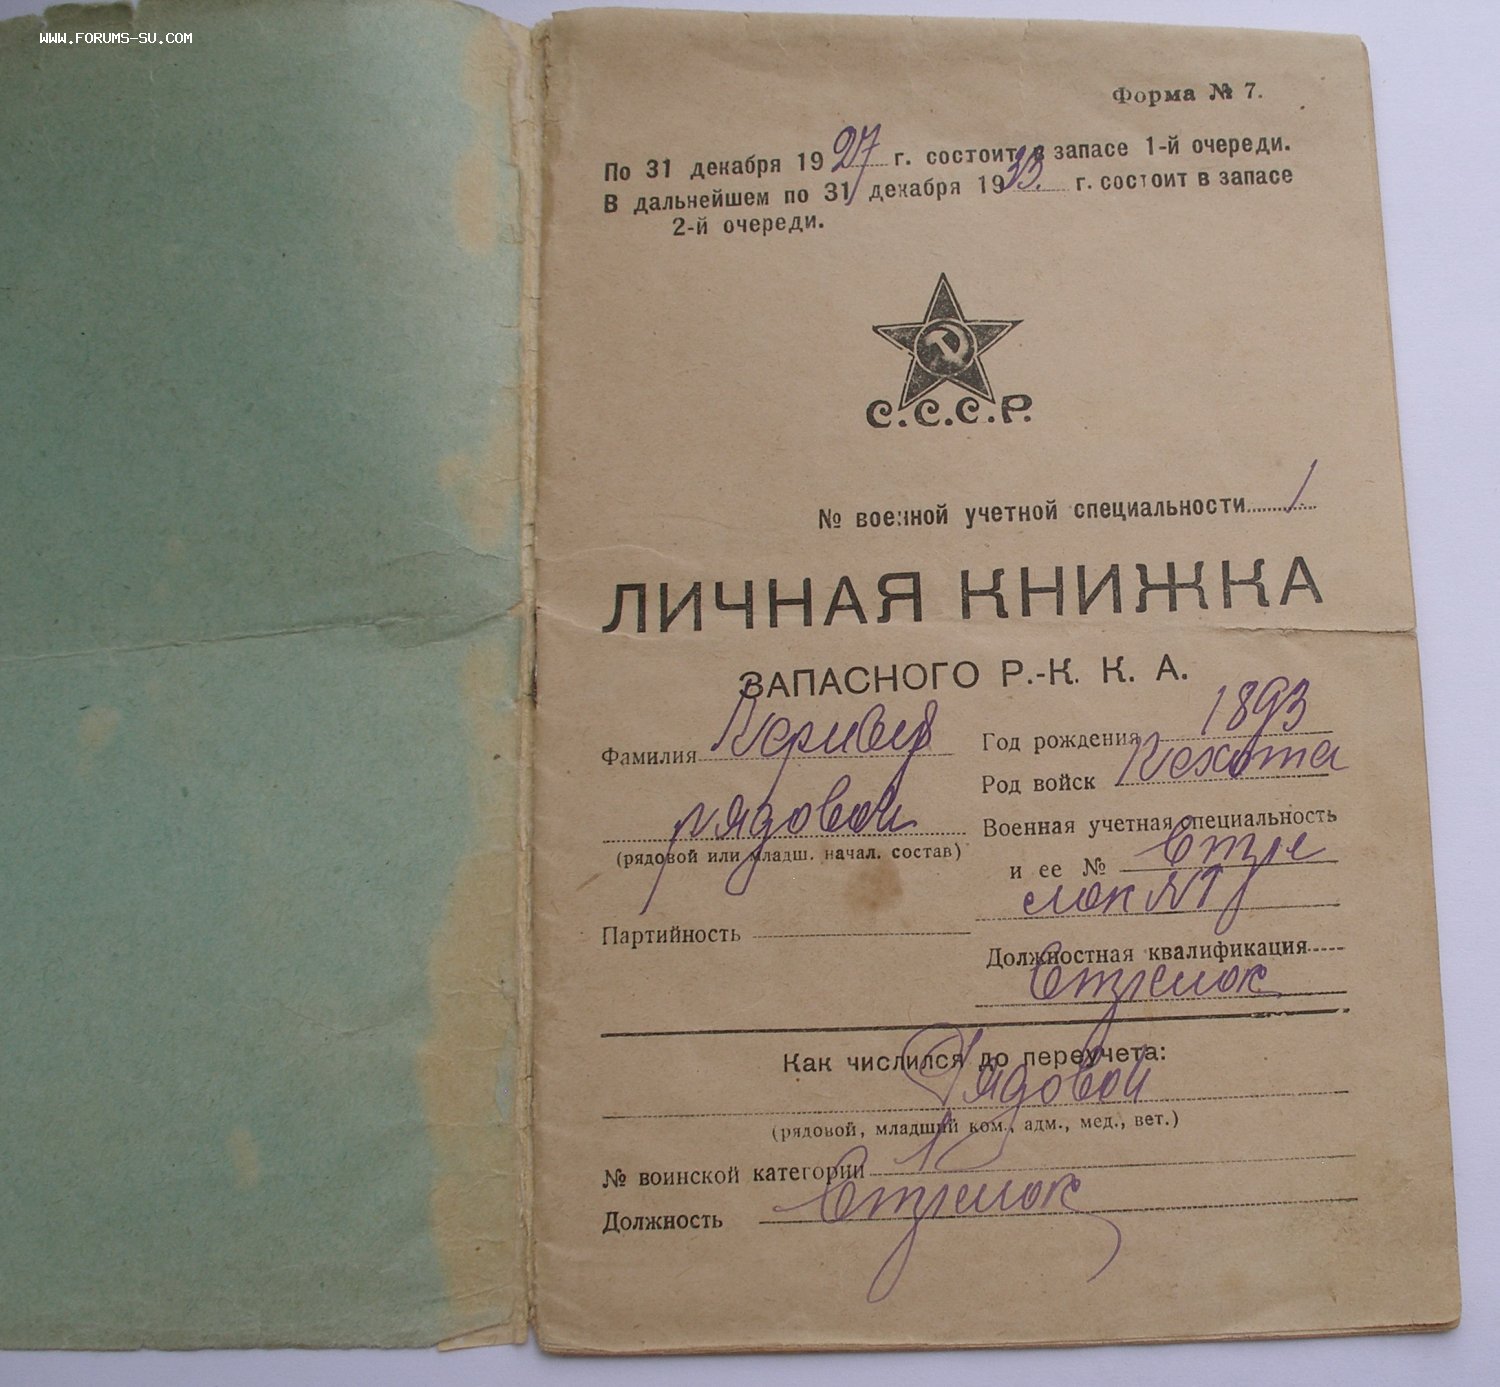 WWW.FORUMS-SU.COM
Форма № 7.
По 31 декабря 1927 г. состоит в запасе 1-й очереди.
В дальнейшем по 31 декабря 1933. г. состоит в запасе
2-й очереди.
С.С.С.Р.
№ военной учетной специальности 1
ЛИЧНАЯ КНИЖКА
ЗАПАСНОГО Р.-К. К. А.
Фамилия
Год рождения 1893
Род войск Пехота
рядовой
(рядовой или младш. начал. состав)
Военная учетная специальность
и ее № Стре
лок №1
Партийность
Должностная квалификация
Стрелок
Как числился до переучета:
Рядовой
(рядовой, младший ком., адм., мед., вет.)
№ воинской категории 1
Должность Стрелок